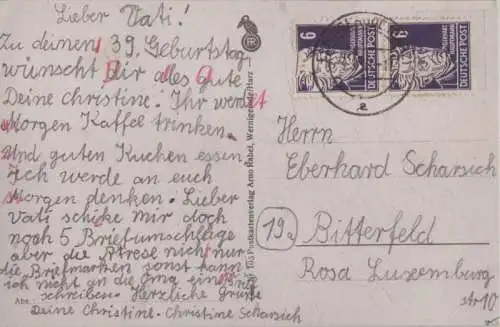 Lieber Vati!
Zu deinen 39. Geburtstag
wünscht Dir alles Gute
Deine Christine. Ihr werdet
Morgen Kaffe trinken.
Und guten Kuchen essen
Ich werde an euch
Morgen denken. Lieber
Vati schike mir doch
noch 5 Briefumschläge
aber die Atrese nicht nur
die Briefmarken sonst kann
ich nicht an die Oma einmal
schreiben. Herzliche Grüße
Abs.: Deine Christine. Christine Scharsich
105 Postkartenverlag Arno Rabel, Wernigerode/Harz
6
DEUTSCHE POST
GERHART HAUPTMANN
6
DEUTSCHE POST
GERHART HAUPTMANN
a
Herrn
Eberhard Scharsich
19a
Bitterfeld
Rosa Luxemburg
str 10